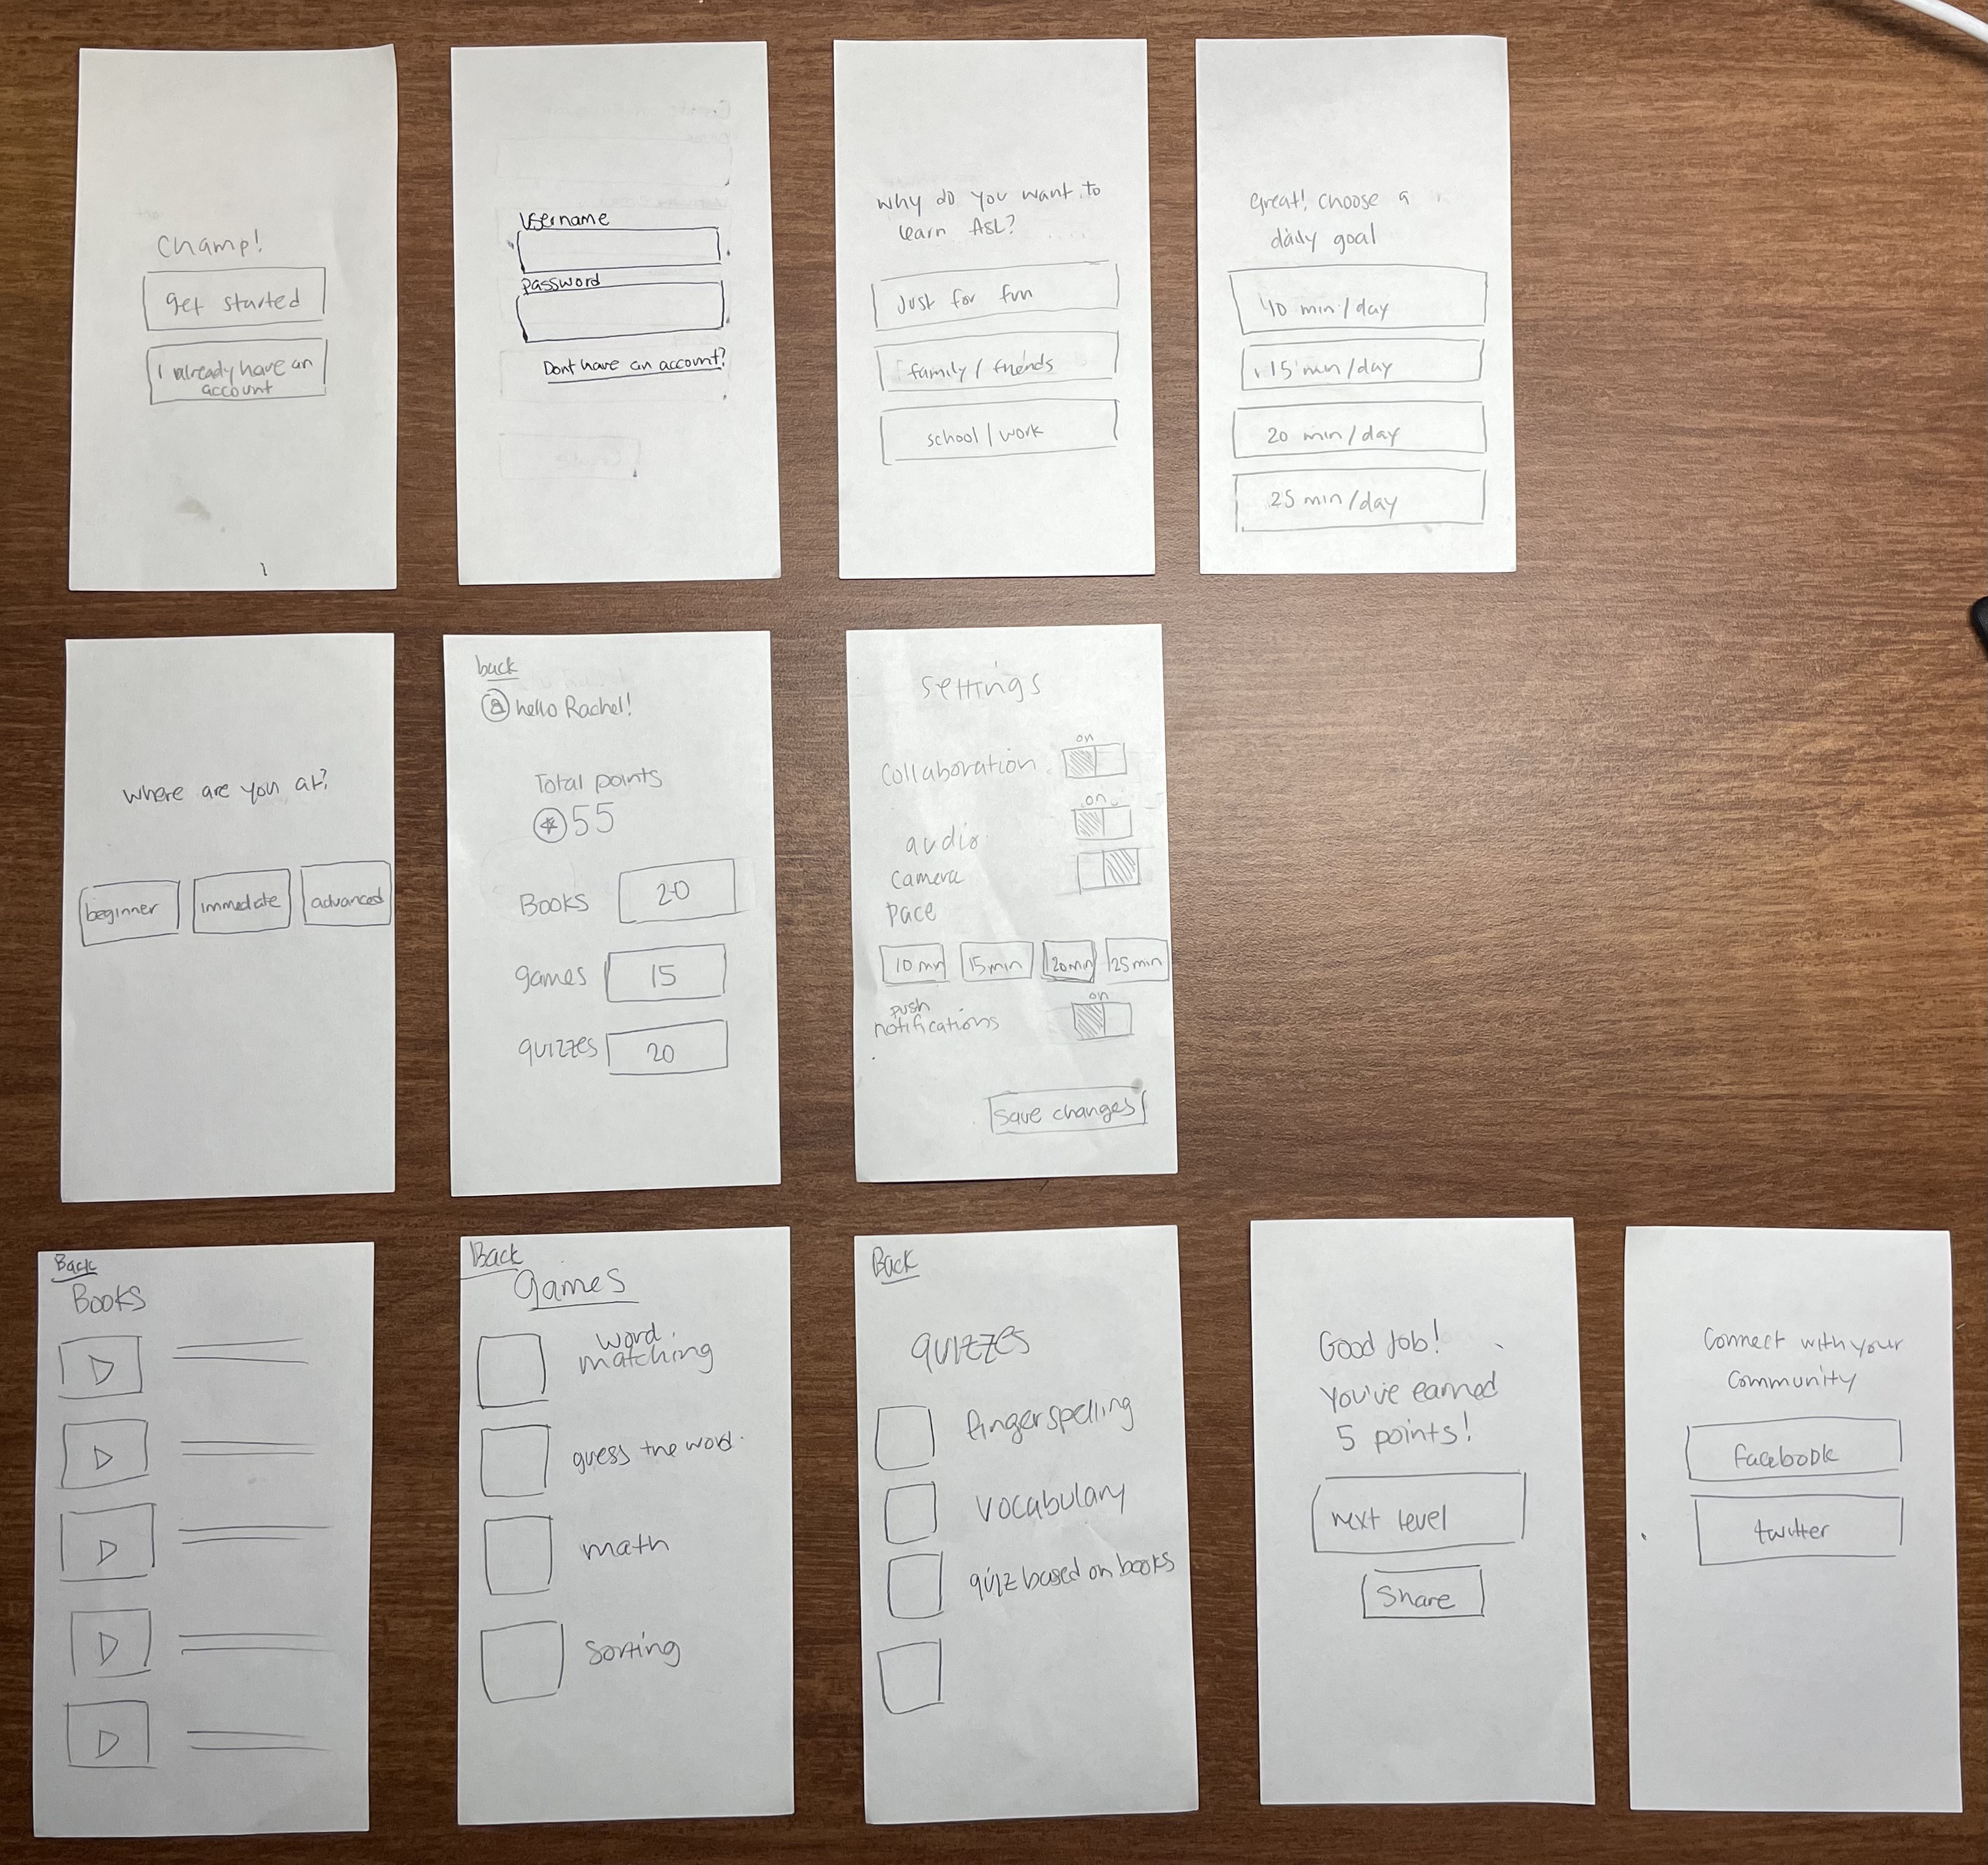 Champ!
get started
I already have an
account
Username
password
Dont have an account?
Why do you want to
learn ASL?
Just for fun
family / friends
school / work
Great! choose a
daily goal
10 min/day
15 min/day
20 min/day
25 min/day
where are you at?
beginner
immediate
advanced
back
hello Rachel!
Total points
55
Books 20
games 15
quizzes 20
Settings
on
Collaboration
on
audio
camera
pace
10 min 15min 20min 25min
on
push
notifications
Save changes
Back
Books
Back
Games
word
matching
guess the word
math
sorting
Back
quizzes
fingerspelling
vocabulary
quiz based on books
Good Job!
You've earned
5 points!
next level
Share
Connect with your
Community
facebook
twitter